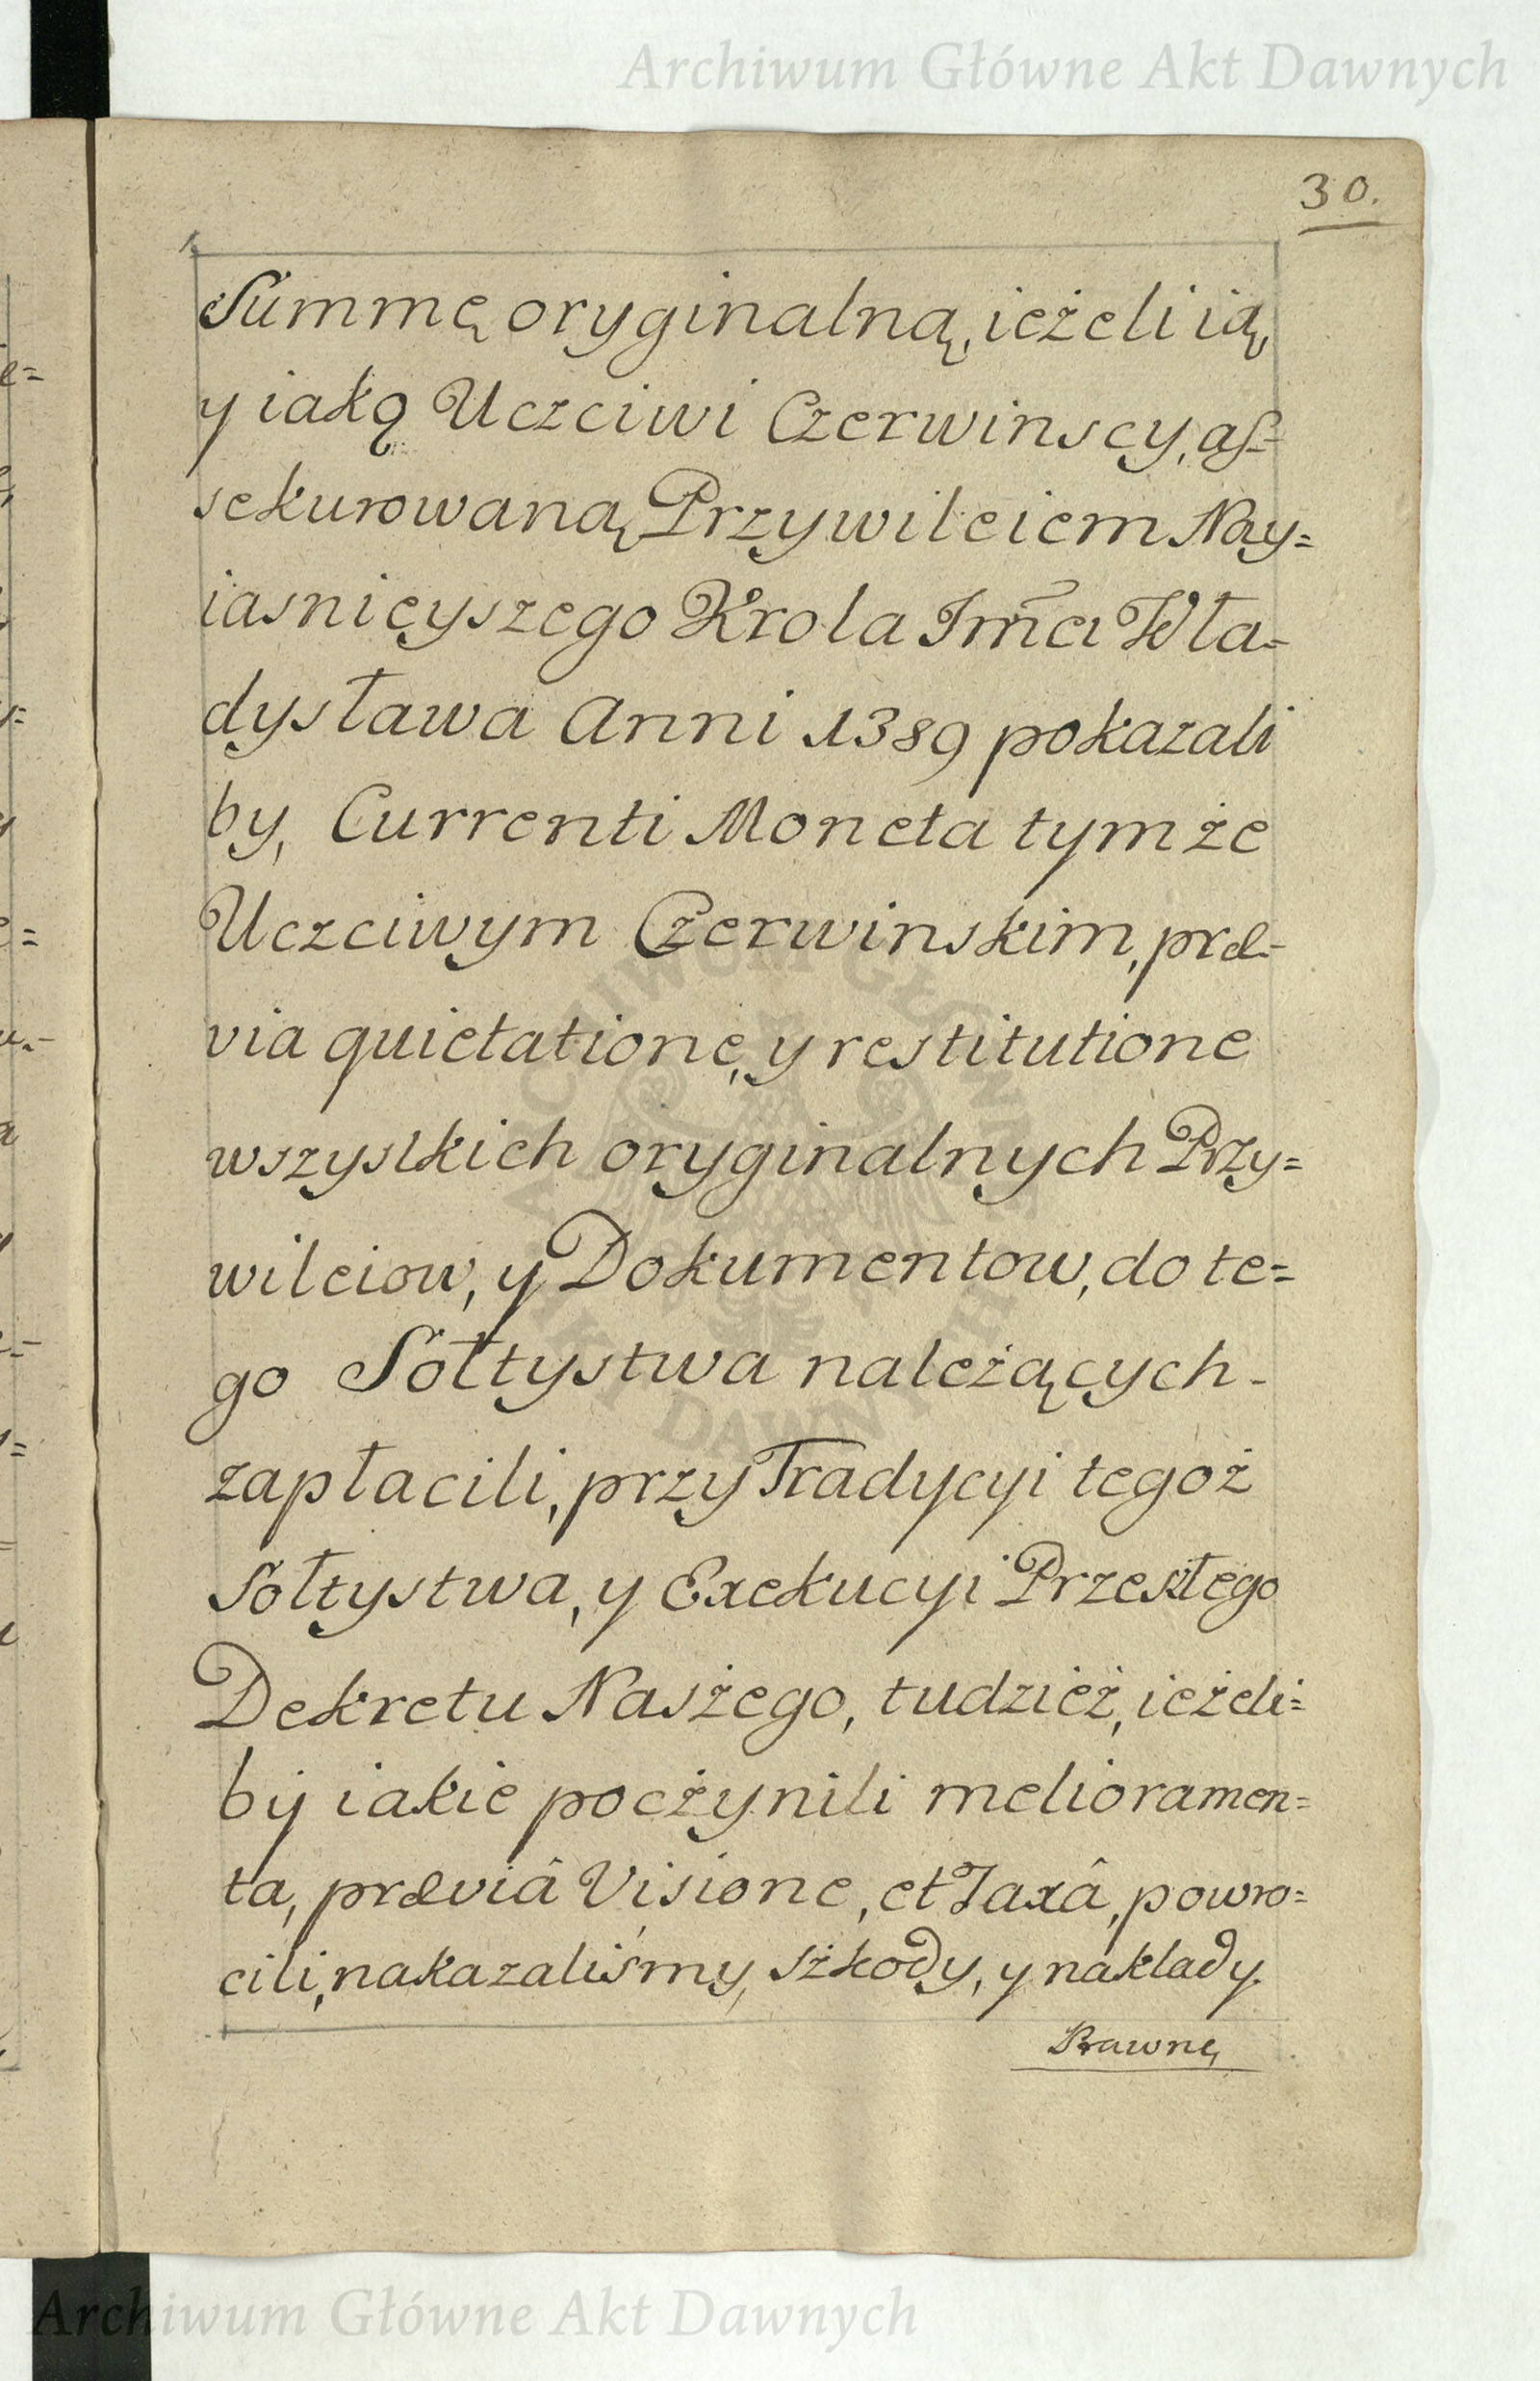 Archiwum Główne Akt Dawnych
30.
Summę oryginalną, ieżeli ią,
y iaką Uczciwi Czerwinscy, as-
sekurowaną Przywileiem Nay=
iasnieyszego Krola Jmći Wła=
dysława Anni 1389 pokazali
by, Currenti Moneta tymże
Uczciwym Czerwinskim, præ-
via quietatione, y restitutione
wszystkich oryginalnych Przy=
wileiow, y Dokumentow, do te=
go Sołtystwa należących -
zapłacili, przy Tradycyi tegoż
Sołtystwa, y Exekucyi Przeszłego
Dekretu Naszego, tudzież, ieżeli=
by iakie poczynili melioramen=
ta, præviâ Visione, et Taxâ, powro=
cili, nakazaliśmy, szkody, y naklady.
Prawne,
ARCHIWUM GŁÓWNE AKT DAWNYCH
Archiwum Główne Akt Dawnych